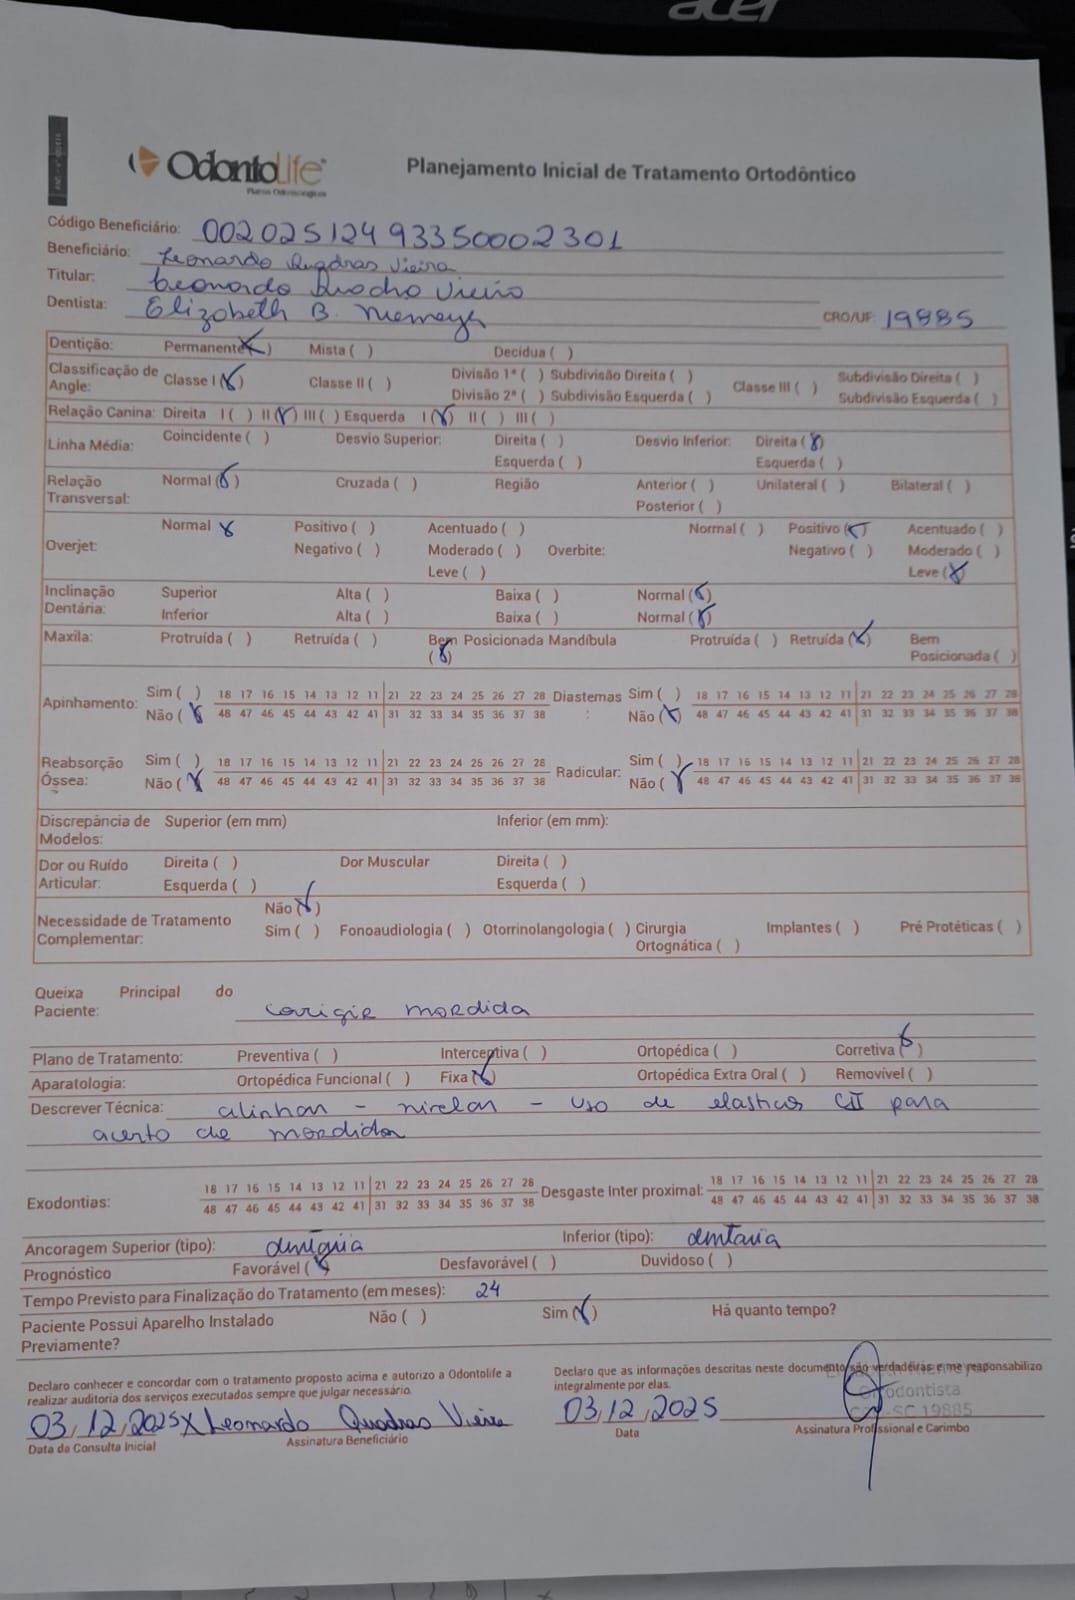 acer
OdontoLife
Planos Odontológicos
Planejamento Inicial de Tratamento Ortodôntico
Código Beneficiário: 00202512493350002301
Beneficiário: Leonardo Quadros Vieira
Titular: Leonardo Vieira
Dentista: Elizabeth B. Niemeyer CRO/UF: 19885
Dentição: Permanente (X) Mista ( ) Decídua ( )
Classificação de Angle: Classe I (X) Classe II ( ) Divisão 1ª ( ) Subdivisão Direita ( ) Classe III ( ) Subdivisão Direita ( )
Divisão 2ª ( ) Subdivisão Esquerda ( ) Subdivisão Esquerda ( )
Relação Canina: Direita I ( ) II (X) III ( ) Esquerda I (X) II ( ) III ( )
Linha Média: Coincidente ( ) Desvio Superior: Direita ( ) Desvio Inferior: Direita (X)
Esquerda ( ) Esquerda ( )
Relação Transversal: Normal (X) Cruzada ( ) Região Anterior ( ) Unilateral ( ) Bilateral ( )
Posterior ( )
Overjet: Normal X Positivo ( ) Acentuado ( ) Normal ( ) Positivo (X) Acentuado ( )
Negativo ( ) Moderado ( ) Overbite: Negativo ( ) Moderado ( )
Leve ( ) Leve (X)
Inclinação Dentária: Superior Alta ( ) Baixa ( ) Normal (X)
Inferior Alta ( ) Baixa ( ) Normal (X)
Maxila: Protruída ( ) Retruída ( ) Bem Posicionada (X) Mandíbula Protruída ( ) Retruída (X) Bem Posicionada ( )
Apinhamento: Sim ( ) 18 17 16 15 14 13 12 11 21 22 23 24 25 26 27 28 Diastemas: Sim ( ) 18 17 16 15 14 13 12 11 21 22 23 24 25 26 27 28
Não (X) 48 47 46 45 44 43 42 41 31 32 33 34 35 36 37 38 Não (X) 48 47 46 45 44 43 42 41 31 32 33 34 35 36 37 38
Reabsorção Óssea: Sim ( ) 18 17 16 15 14 13 12 11 21 22 23 24 25 26 27 28 Radicular: Sim ( ) 18 17 16 15 14 13 12 11 21 22 23 24 25 26 27 28
Não (X) 48 47 46 45 44 43 42 41 31 32 33 34 35 36 37 38 Não (X) 48 47 46 45 44 43 42 41 31 32 33 34 35 36 37 38
Discrepância de Modelos: Superior (em mm) Inferior (em mm):
Dor ou Ruído Articular: Direita ( ) Dor Muscular Direita ( )
Esquerda ( ) Esquerda ( )
Necessidade de Tratamento Complementar: Não (X)
Sim ( ) Fonoaudiologia ( ) Otorrinolangologia ( ) Cirurgia Ortognática ( ) Implantes ( ) Pré Protéticas ( )
Queixa Principal do Paciente: corrigir mordida
Plano de Tratamento: Preventiva ( ) Interceptiva ( ) Ortopédica ( ) Corretiva (X)
Aparatologia: Ortopédica Funcional ( ) Fixa (X) Ortopédica Extra Oral ( ) Removível ( )
Descrever Técnica: alinhar - nivelar - uso de elasticos CII para
acerto de mordida
Exodontias: 18 17 16 15 14 13 12 11 21 22 23 24 25 26 27 28 Desgaste Inter proximal: 18 17 16 15 14 13 12 11 21 22 23 24 25 26 27 28
48 47 46 45 44 43 42 41 31 32 33 34 35 36 37 38 48 47 46 45 44 43 42 41 31 32 33 34 35 36 37 38
Ancoragem Superior (tipo): dentária Inferior (tipo): dentaria
Prognóstico Favorável (X) Desfavorável ( ) Duvidoso ( )
Tempo Previsto para Finalização do Tratamento (em meses): 24
Paciente Possui Aparelho Instalado Previamente? Não ( ) Sim (X) Há quanto tempo?
Declaro conhecer e concordar com o tratamento proposto acima e autorizo a Odontolife a
realizar auditoria dos serviços executados sempre que julgar necessário.
Declaro que as informações descritas neste documento são verdadeiras e me responsabilizo
integralmente por elas.
Ortodontista
CRO-SC 19885
03/12/2025 X Leonardo Quadros Vieira 03/12/2025
Data da Consulta Inicial Assinatura Beneficiário Data Assinatura Profissional e Carimbo